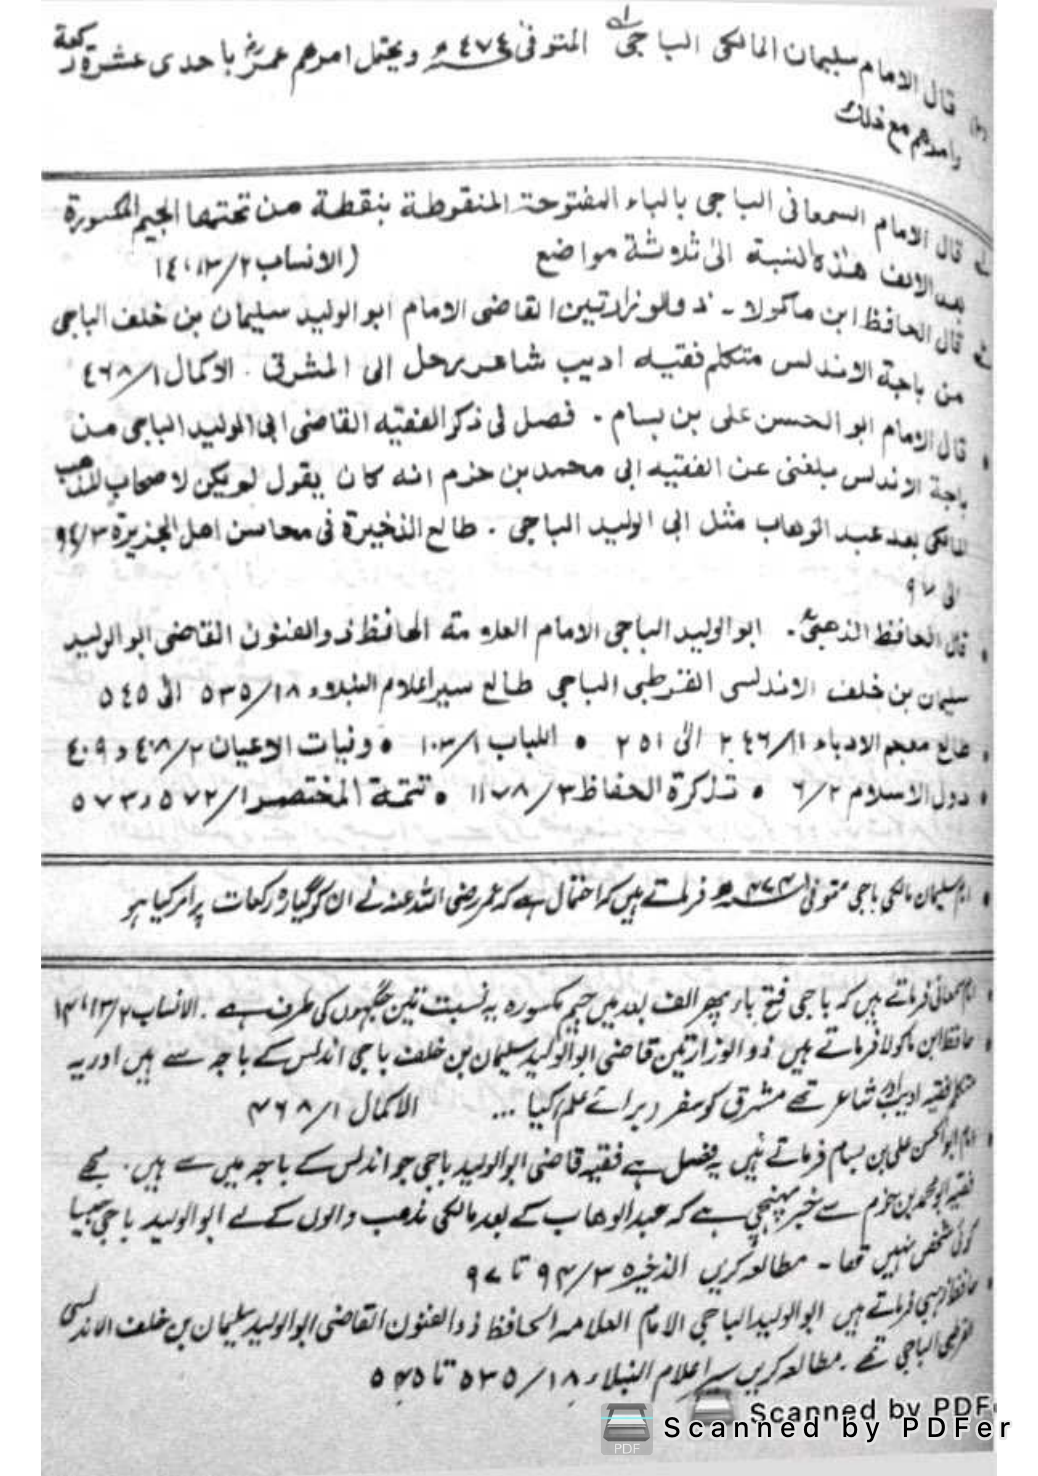 (۲۰) قال الامام سلیمان المالکی الباجی المتوفی ٤٧٤ھ ویحتمل امرھم عمرؓ باحدی عشرۃ رکعۃ
وامرھم مع ذلک
قال الامام السمعانی الباجی بالباء المفتوحۃ المنقوطۃ بنقطۃ من تحتھا الجیم المکسورۃ
بعد الالف ھذہ النسبۃ الی ثلاثۃ مواضع (الانساب ١٣/٢، ١٤
قال الحافظ ابن ماکولا ۔ ذوالوزارتین القاضی الامام ابوالولید سلیمان بن خلف الباجی
من باجۃ الاندلس متکلم فقیہ ادیب شاعر رحل الی المشرق . الاکمال ٤٦٨/١
• قال الامام ابوالحسن علی بن بسام . فصل فی ذکر الفقیہ القاضی ابی الولید الباجی من
باجۃ الاندلس بلغنی عن الفقیہ ابی محمد بن حزم انہ کان یقول لم یکن لاصحاب المذھب
المالکی بعد عبد الوھاب مثل ابی الولید الباجی . طالع الذخیرۃ فی محاسن اھل الجزیرۃ ٩٤/٣
الی ٩٧
• قال الحافظ الذھبیؒ . ابوالولید الباجی الامام العلامۃ الحافظ ذوالفنون القاضی ابوالولید
سلیمان بن خلف الاندلسی القرطبی الباجی طالع سیر اعلام النبلاء ٥٣٥/١٨ الی ٥٤٥
• طالع معجم الادباء ٢٤٦/١١ الی ٢٥١ • اللباب ١٠٣/١ • وفیات الاعیان ٤٠٨/٢ و ٤٠٩
• دول الاسلام ٦/٢ • تذکرۃ الحفاظ ١١٧٨/٣ • تتمۃ المختصر ٥٧٢/١ و ٥٧٣
• امام سلیمان مالکی باجی متوفی ۴۷۴ھ فرماتے ہیں کہ احتمال ہے کہ عمر رضی اللہ عنہ نے ان کو گیارہ رکعات پر امر کیا ہو
• امام سمعانی فرماتے ہیں کہ باجی فتح باء پھر الف بعد میں جیم مکسورہ یہ نسبت تین جگہوں کی طرف ہے . الانساب ۱۳/۲، ۱۴
• حافظ ابن ماکولا فرماتے ہیں ذوالوزارتین قاضی ابوالولید سلیمان بن خلف باجی اندلس کے باجہ سے ہیں اور یہ
متکلم فقیہ ادیب اور شاعر تھے مشرق کو سفر (برائے علم) کیا ... الاکمال ۴۶۸/۱
• امام ابوالحسن علی بن بسام فرماتے ہیں یہ فصل ہے فقیہ قاضی ابوالولید باجی جو اندلس کے باجہ میں سے ہیں . مجھے
فقیہ ابومحمد بن حزم سے خبر پہنچی ہے کہ عبدالوہاب کے بعد مالکی مذہب والوں کے لے ابوالولید باجی جیسا
کوئی شخص نہیں تھا ۔ مطالعہ کریں الذخیرہ ۹۴/۳ تا ۹۷
• حافظ ذہبی فرماتے ہیں ابوالولید الباجی الامام العلامہ الحافظ ذوالفنون القاضی ابوالولید سلیمان بن خلف الاندلسی
القرطبی الباجی تھے . مطالعہ کریں سیر اعلام النبلاء ۵۳۵/۱۸ تا ۵۴۵
Scanned by PDFer
Scanned by PDFer
PDF